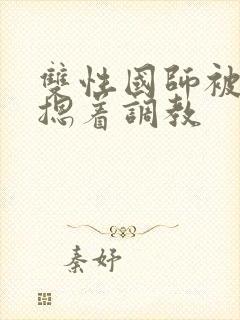 雙性國師被
摁着調教
秦妤